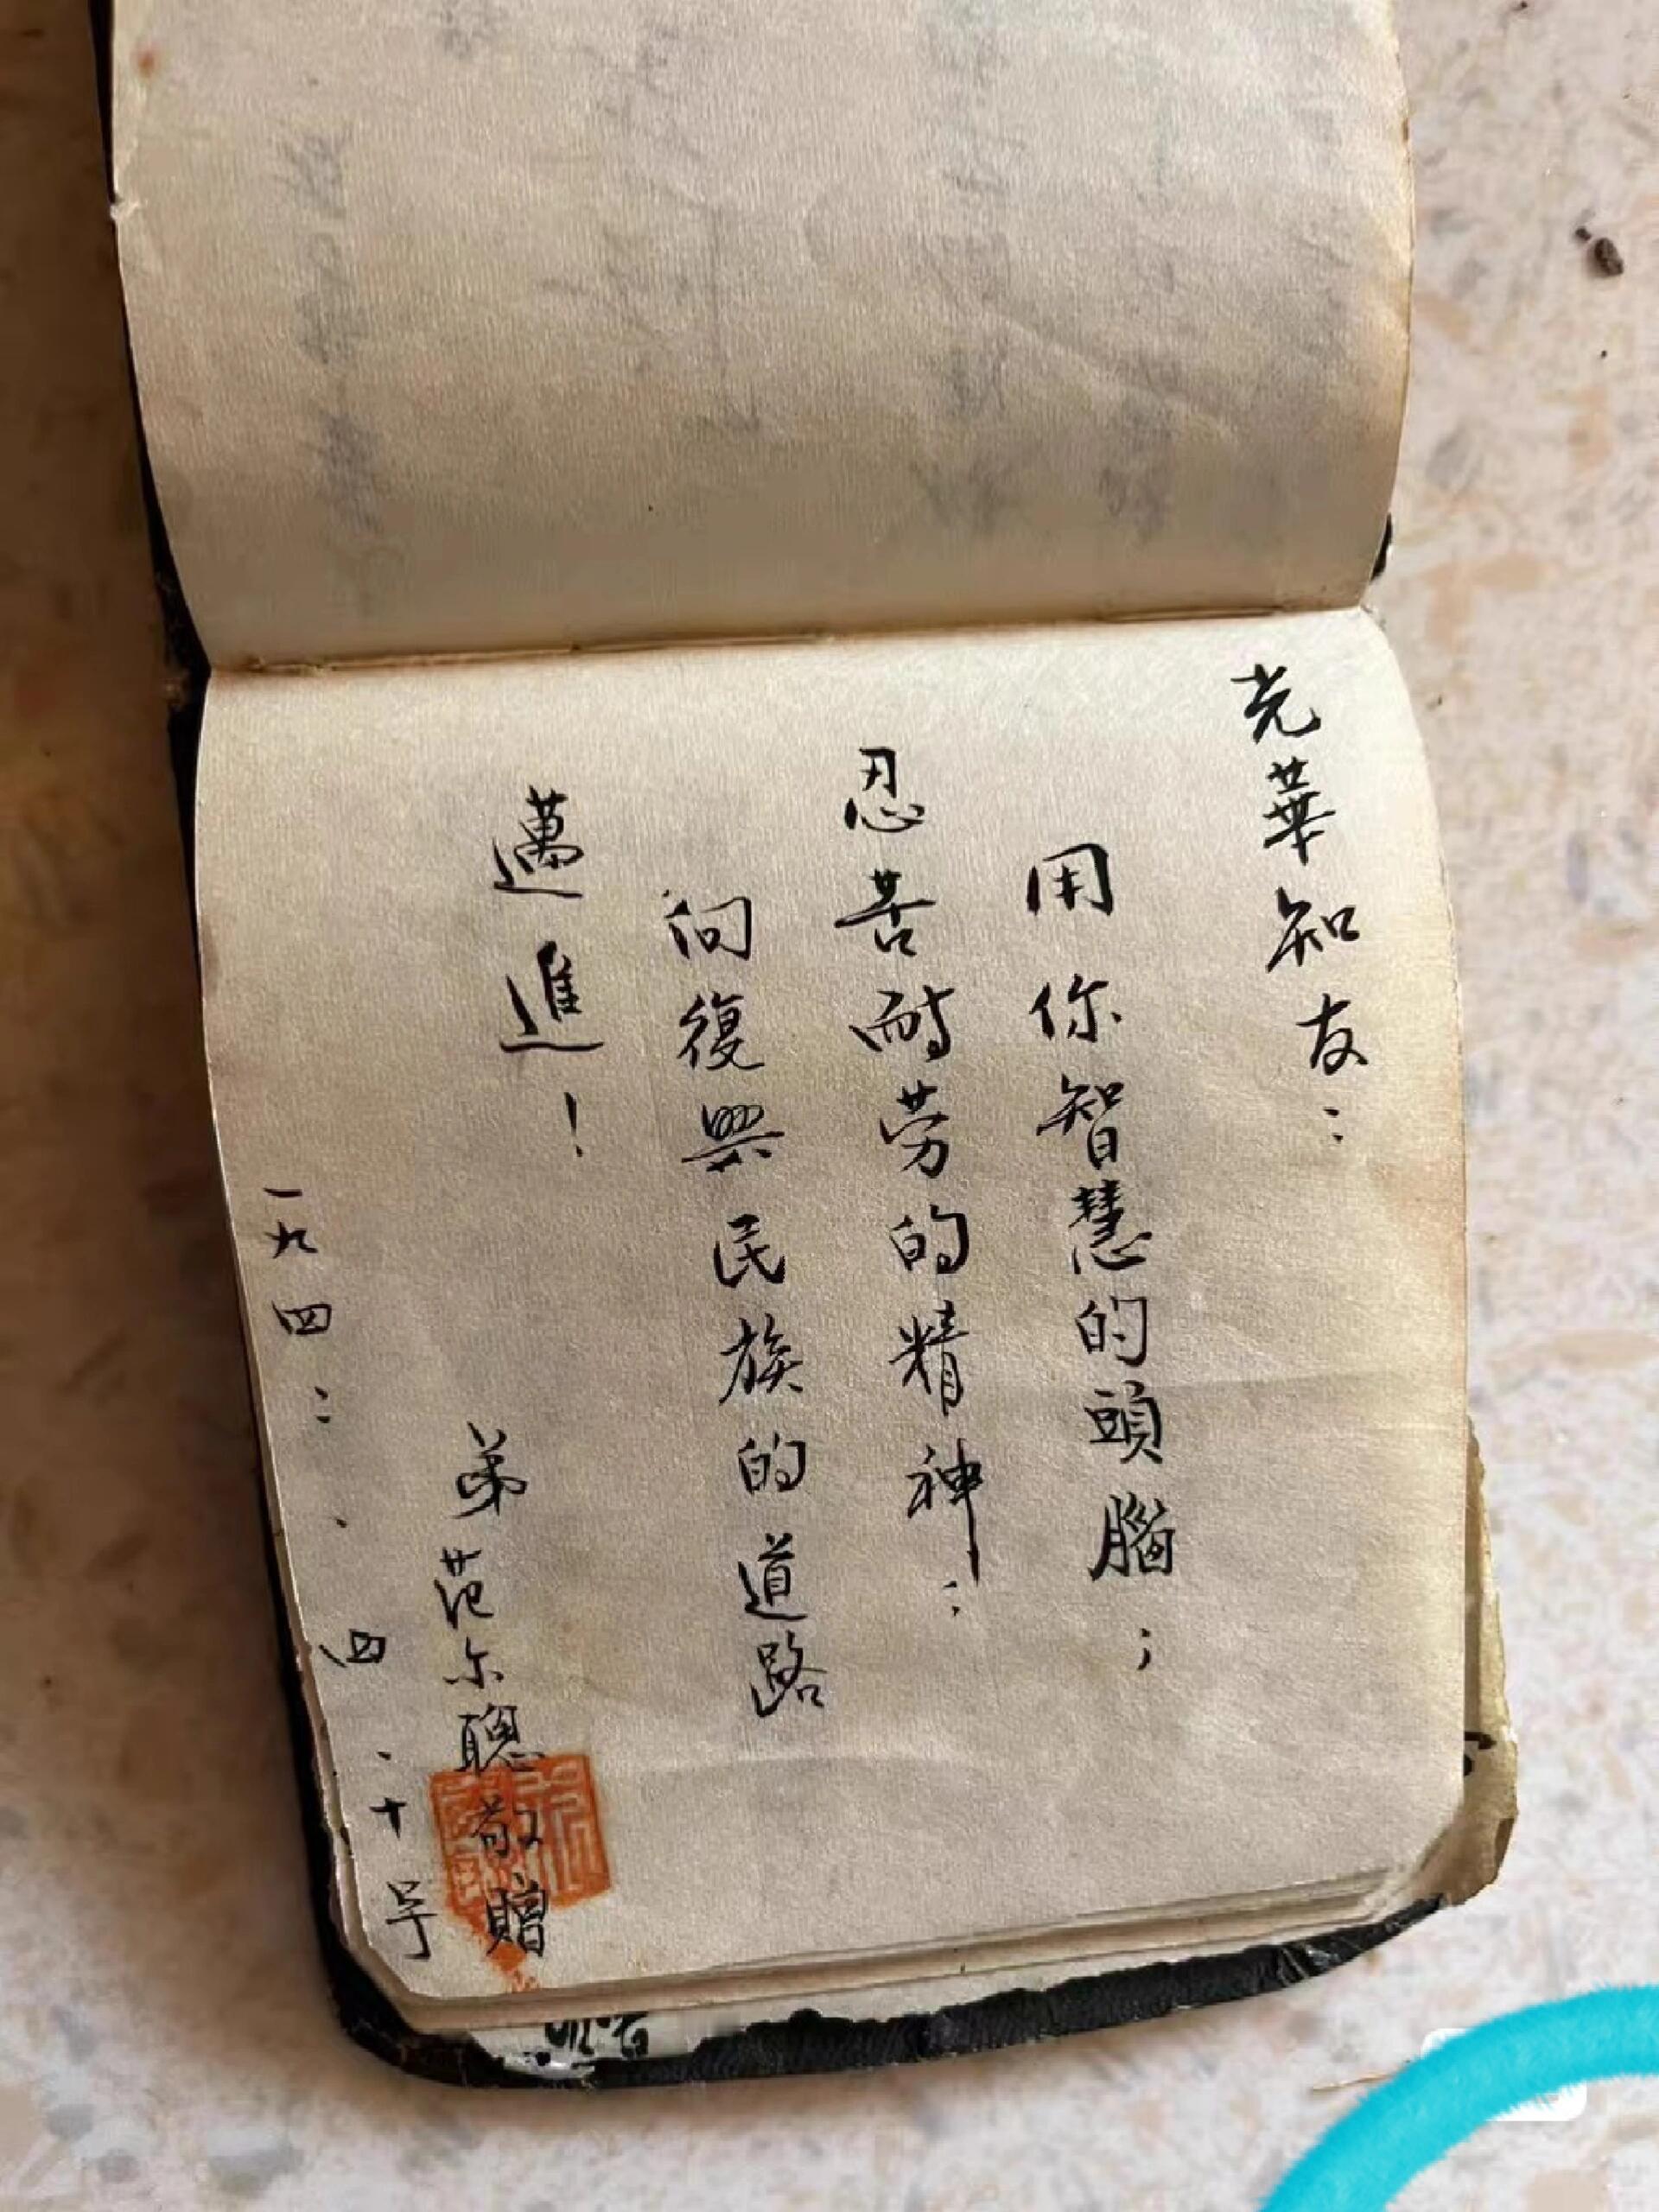 光華知友：
用你智慧的頭腦；
忍苦耐劳的精神：
向復興民族的道路
邁進！
弟范尔聰敬贈
一九四：.四.十号